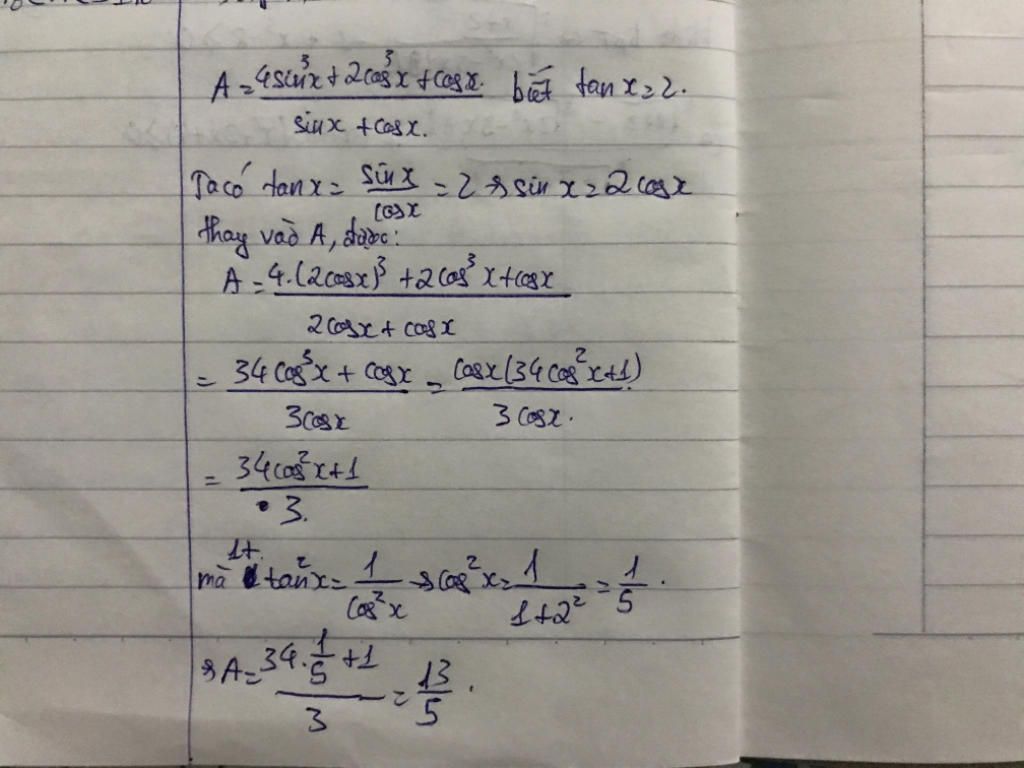 A = (4sin³x + 2cos³x + cosx) / (sinx + cosx). biết tan x = 2.
Ta có tan x = sin x / cosx = 2 → sin x = 2 cosx
thay vào A, được:
A = (4.(2cosx)³ + 2cos³x + cosx) / (2cosx + cosx)
= (34cos³x + cosx) / (3cosx) = cosx(34cos²x+1) / (3cosx).
= (34cos²x+1) / 3.
mà 1+ tan²x = 1 / cos²x → cos²x = 1 / (1+2²) = 1/5.
→ A = (34. 1/5 + 1) / 3 = 13/5.